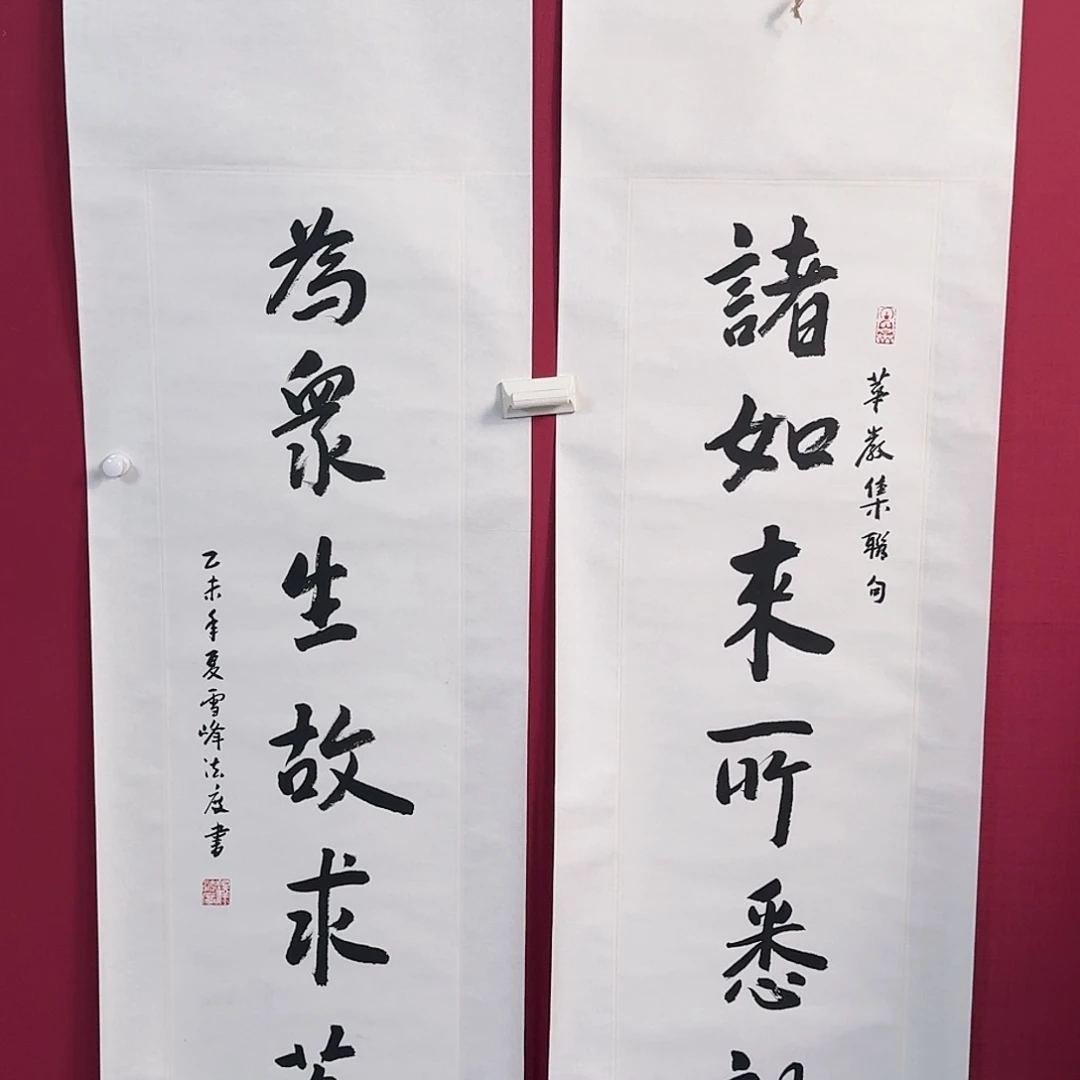 華嚴集聯句
諸如來所悉
為眾生故求
乙未年夏雪峰法度書